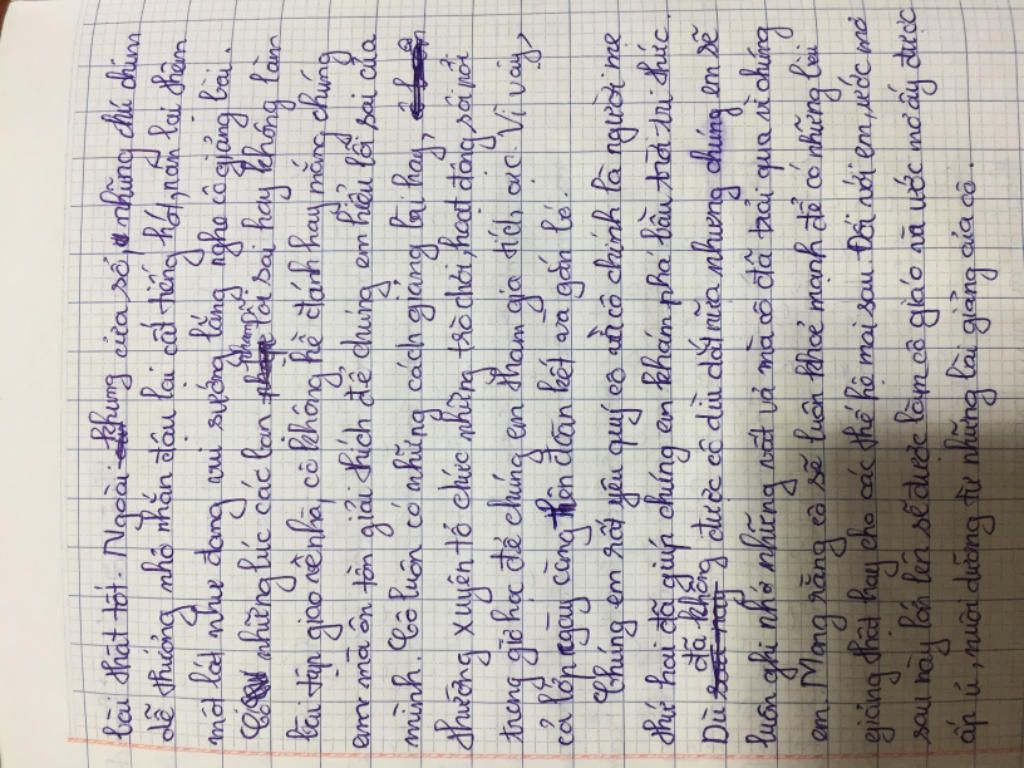 bài thật tốt. Ngoài khung cửa sổ, những chú chim
dễ thương nhỏ nhắn đậu lại cất tiếng hót, nán lại thêm
một lát như đang vui sướng lắng nghe cô giảng bài.
Có những lúc các bạn nhầm lỗi sai hay không làm
bài tập giao về nhà, cô không hề đánh hay mắng chúng
em mà ôn tồn giải thích để chúng em hiểu lỗi sai của
mình. Cô luôn có những cách giảng bài hay,
thường xuyên tổ chức những trò chơi, hoạt động sôi nổi
trong giờ học để chúng em tham gia tích cực. Vì vậy,
cả lớp ngày càng thên đoàn kết và gắn bó.
Chúng em rất yêu quý cô và cô chính là người mẹ
thứ hai đã giúp chúng em khám phá bầu trời tri thức.
Dù đã không được cô dìu dắt nữa nhưng chúng em sẽ
luôn ghi nhớ những vất vả mà cô đã trải qua vì chúng
em. Mong rằng cô sẽ luôn khoẻ mạnh để có những bài
giảng thật hay cho các thế hệ mai sau. Đối với em, ước mơ
sau này lớn lên sẽ được làm cô giáo và ước mơ ấy được
ấp ủ, nuôi dưỡng từ những bài giảng của cô.